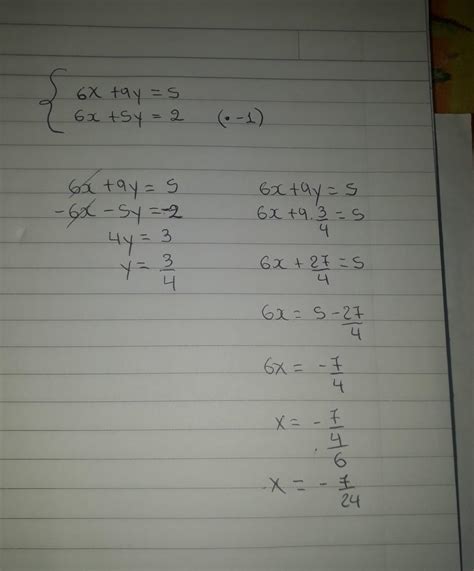 6x + 9y = 5
6x + 5y = 2 (· -1)
6x + 9y = 5
-6x - 5y = -2
4y = 3
y = 3/4
6x + 9y = 5
6x + 9 · 3/4 = 5
6x + 27/4 = 5
6x = 5 - 27/4
6x = - 7/4
x = - 7/4/6
x = - 7/24